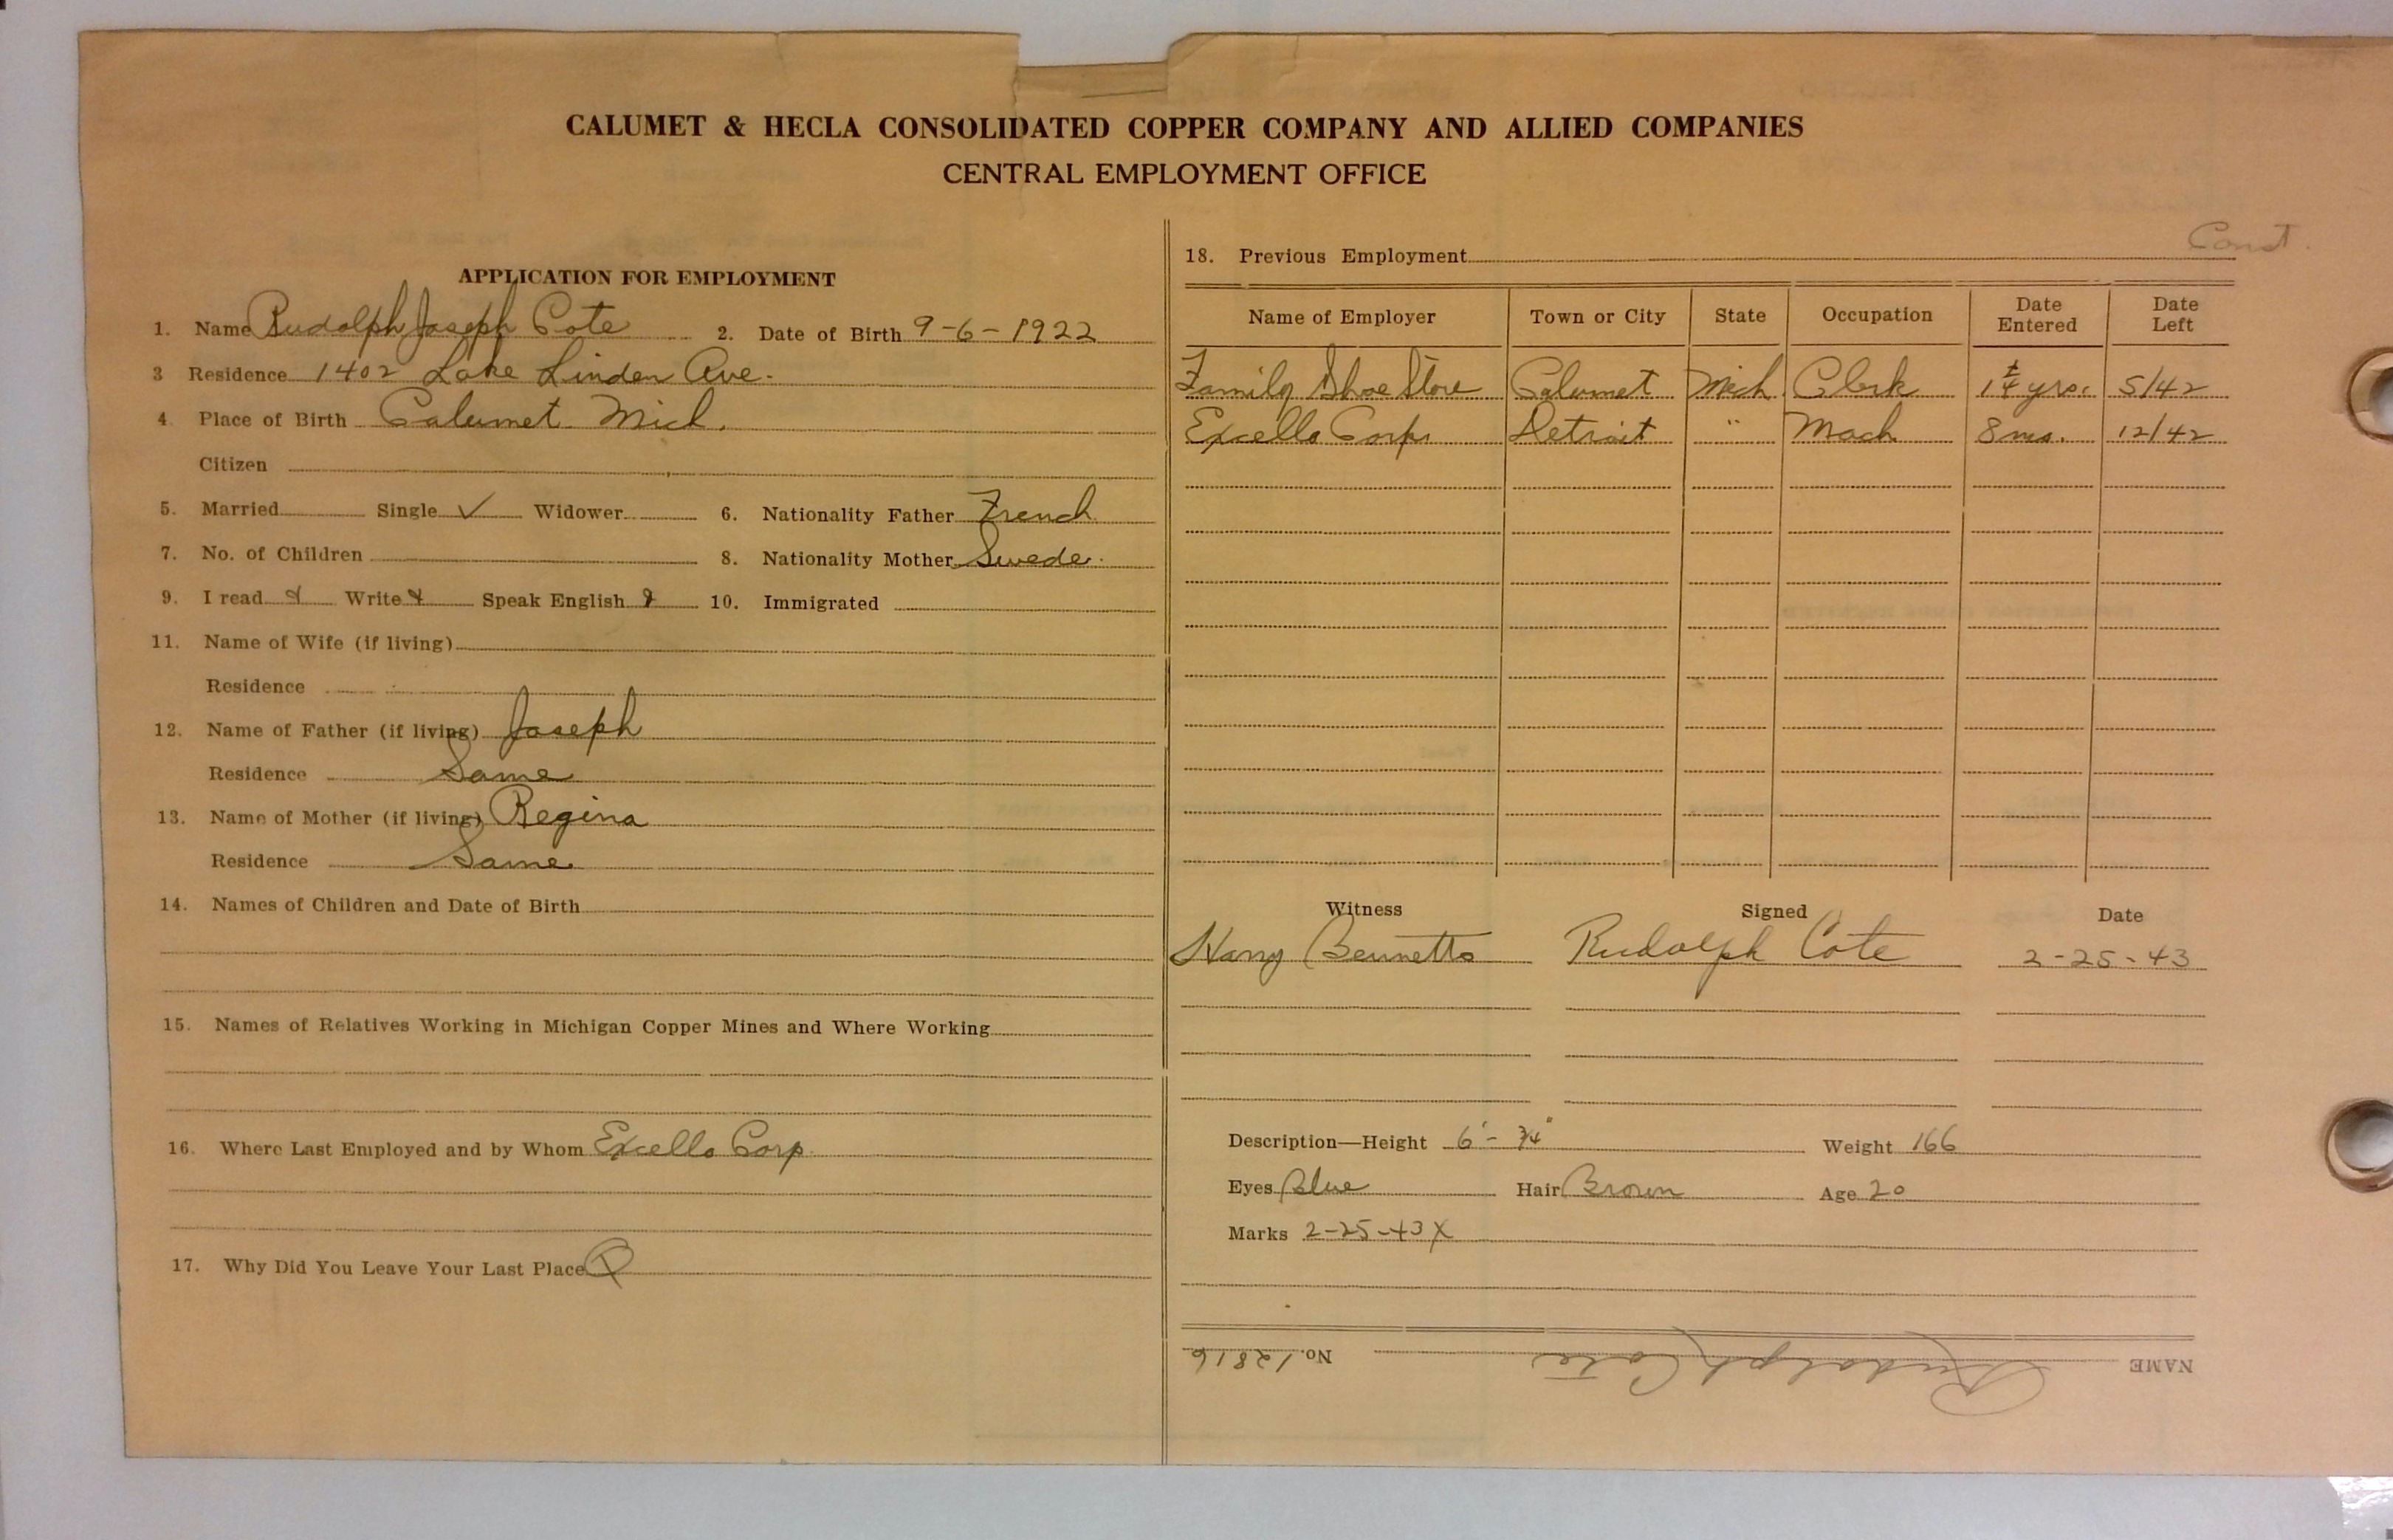 CALUMET & HECLA CONSOLIDATED COPPER COMPANY AND ALLIED COMPANIES
CENTRAL EMPLOYMENT OFFICE
APPLICATION FOR EMPLOYMENT
1. Name Rudolph Joseph Cote 2. Date of Birth 9-6-1922
3 Residence 1402 Lake Linden Ave.
4 Place of Birth Calumet Mich.
Citizen
5. Married Single ✓ Widower 6. Nationality Father French
7. No. of Children 8. Nationality Mother Swede.
9. I read Write Speak English 10. Immigrated
11. Name of Wife (if living)
Residence
12. Name of Father (if living) Joseph
Residence Same
13. Name of Mother (if living) Regina
Residence Same
14. Names of Children and Date of Birth
15. Names of Relatives Working in Michigan Copper Mines and Where Working
16. Where Last Employed and by Whom Excello Corp.
17. Why Did You Leave Your Last Place
Const.
18. Previous Employment
Name of Employer Town or City State Occupation Date Entered Date Left
Family Shoe Store Calumet Mich Clerk yrs. 5/42
Excello Corp. Detroit " Mach 8 mo. 12/42
Witness Signed Date
Harry Bennetts Rudolph Cote 2-25-43
Description—Height 6'-3/4" Weight 166
Eyes Blue Hair Brown Age 20
Marks 2-25-43 X
NAME Rudolph Cote No. 12816